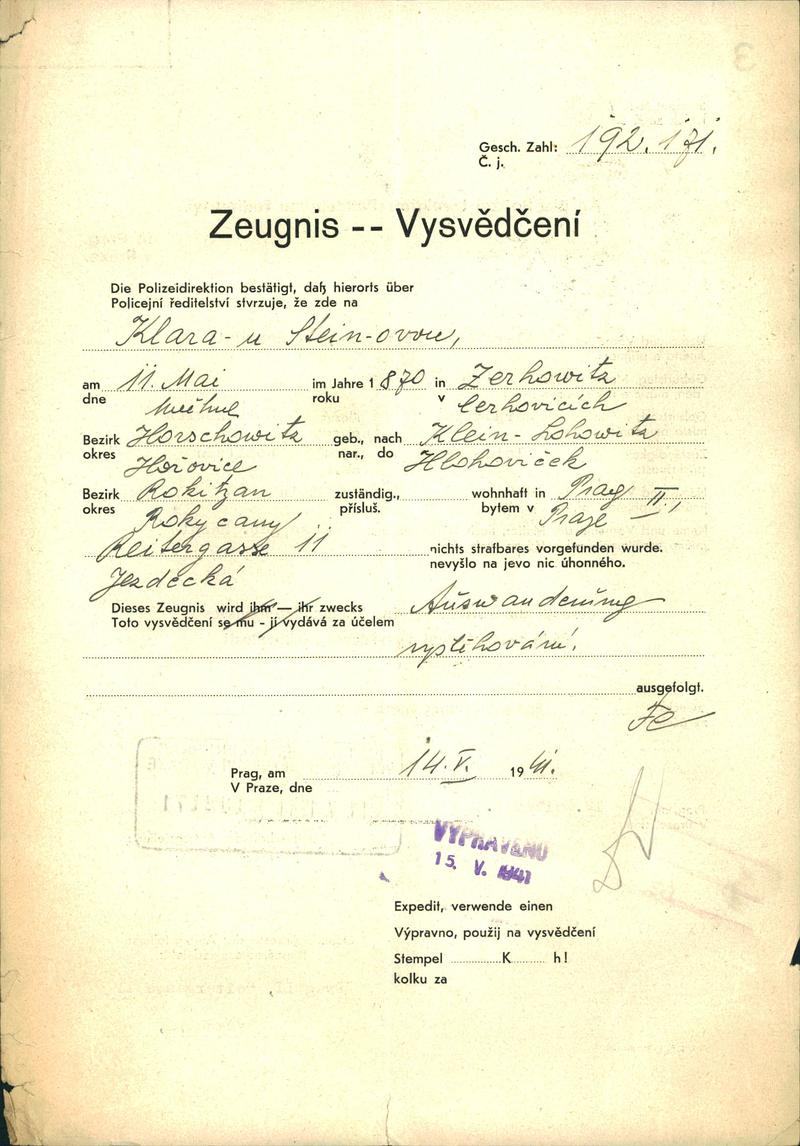 Gesch. Zahl: 192.171.
Č. j.
Zeugnis -- Vysvědčení
Die Polizeidirektion bestätigt, daß hierorts über
Policejní ředitelství stvrzuje, že zde na
Klara-u Stein-ovou,
am 11. Mai im Jahre 1870 in Zerhowitz
dne roku v Cerhovicích
Bezirk Horschowitz geb., nach Klein-Lohowitz
okres Hořovice nar., do Hlohoviček
Bezirk Rokitzan zuständig., wohnhaft in Prag II.,
okres Rokycany přísluš. bytem v Praze
Reitergasse 11 nichts strafbares vorgefunden wurde.
Jezdecká nevyšlo na jevo nic úhonného.
Dieses Zeugnis wird ihm — ihr zwecks Auswanderung
Toto vysvědčení se mu - jí vydává za účelem
vystěhování.
ausgefolgt.
Prag, am 14. V. 1941.
V Praze, dne
VYPRAVENO
15. V. 1941
Expedit, verwende einen
Výpravno, použij na vysvědčení
Stempel K h!
kolku za